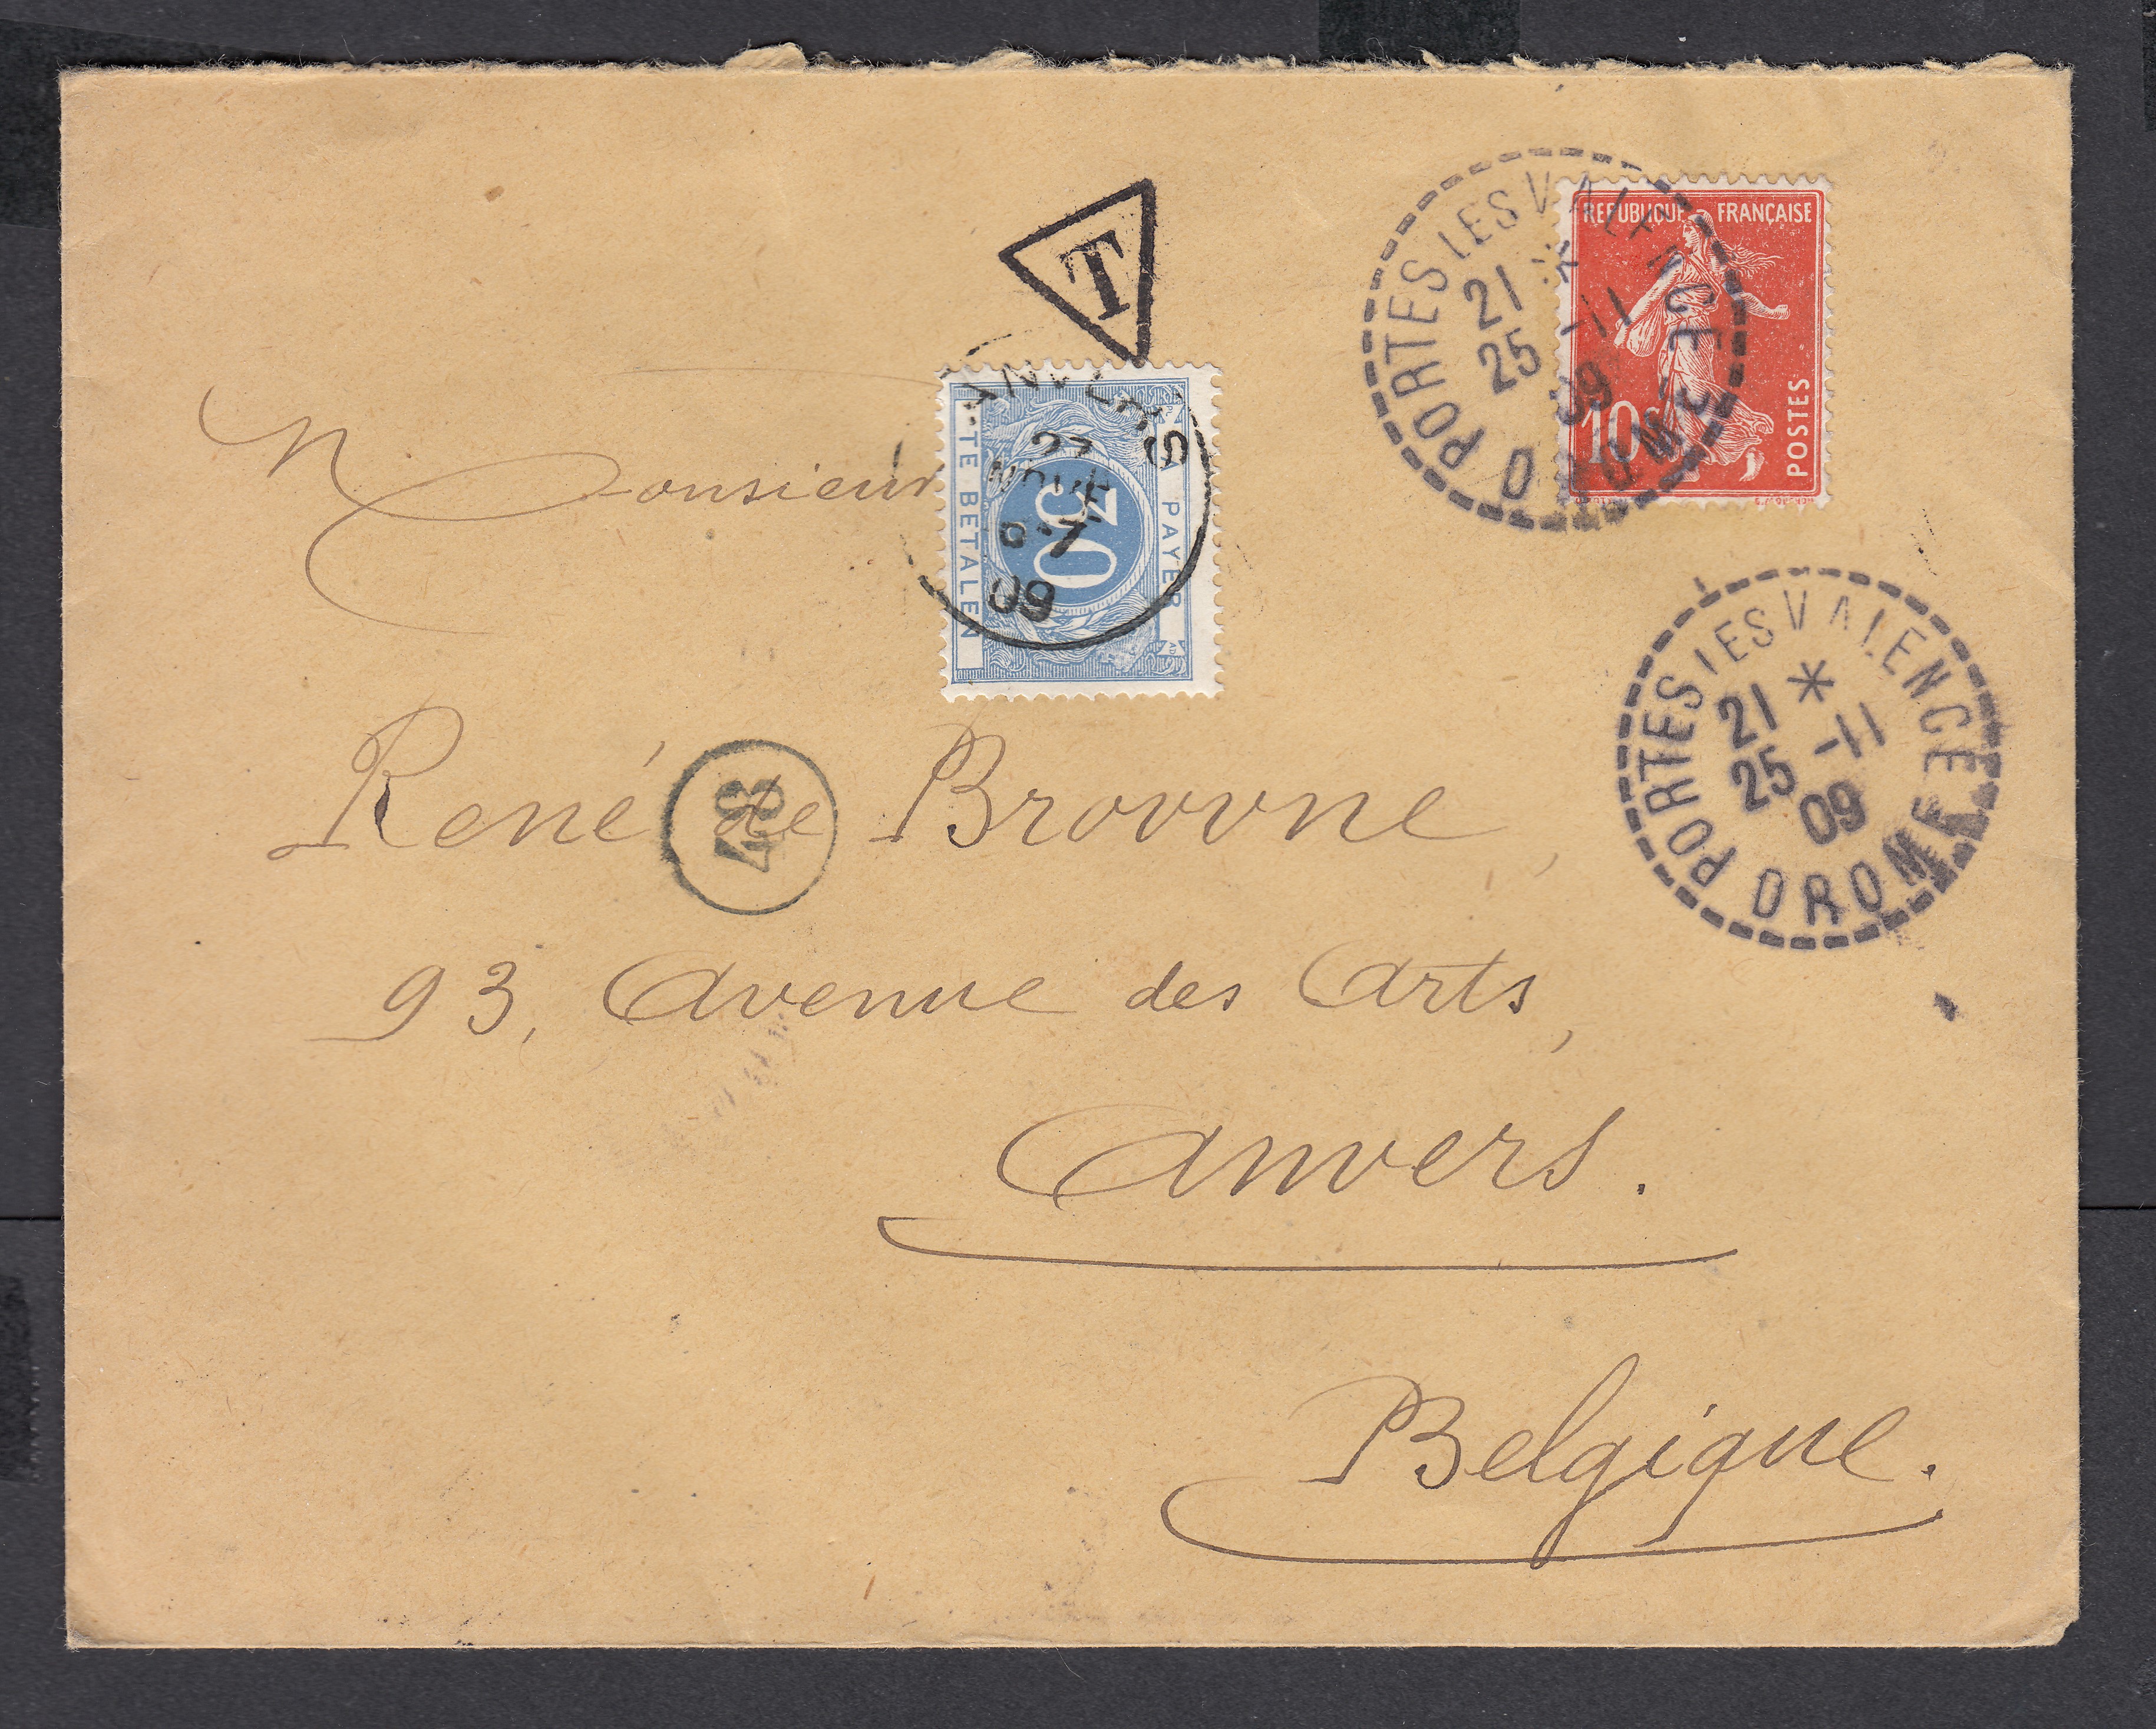 T
REPUBLIQUE FRANÇAISE
10c
POSTES
PORTES LES VALENCE
*
21 -11
25 09
DROME
ANVERS
27
NOVE
6-7
09
A PAYER
TE BETALEN
Monsieur
PORTES LES VALENCE
*
21 -11
25 09
DROME
René de Brovvne,
48
93, Avenue des Arts,
Anvers.
Belgique.